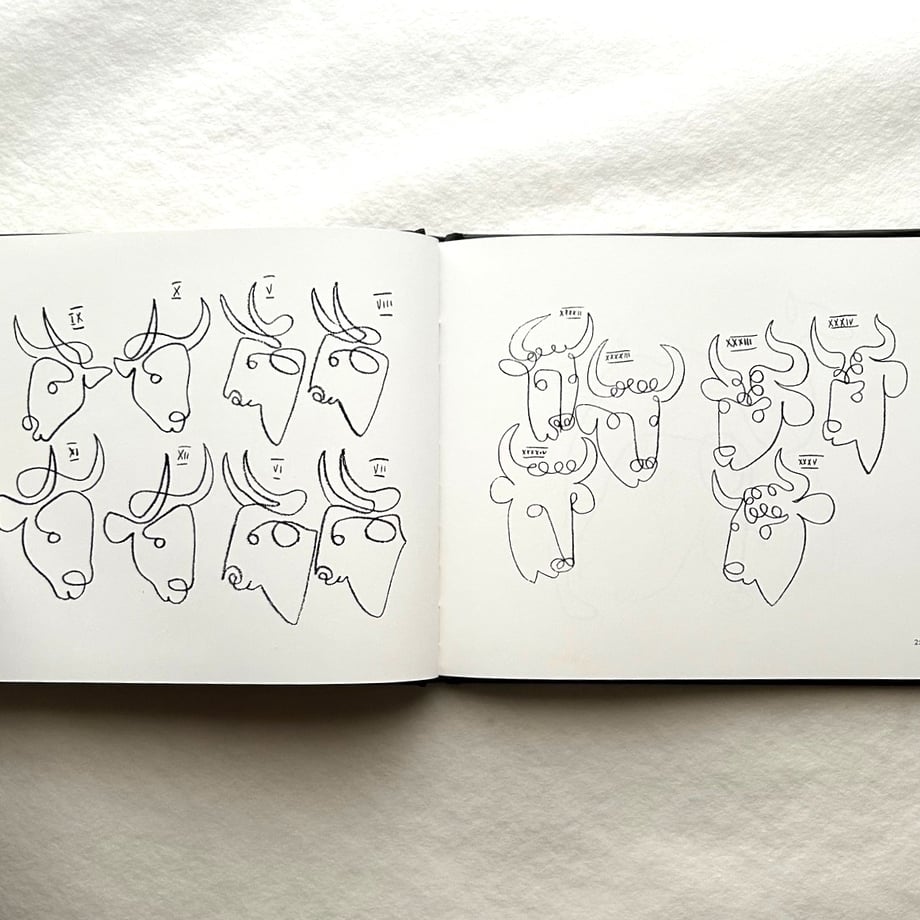 IX
X
V
VIII
XI
XII
VI
VII
XXXXII
XXXXIII
XXXXIV
XXXIII
XXXIV
XXXV